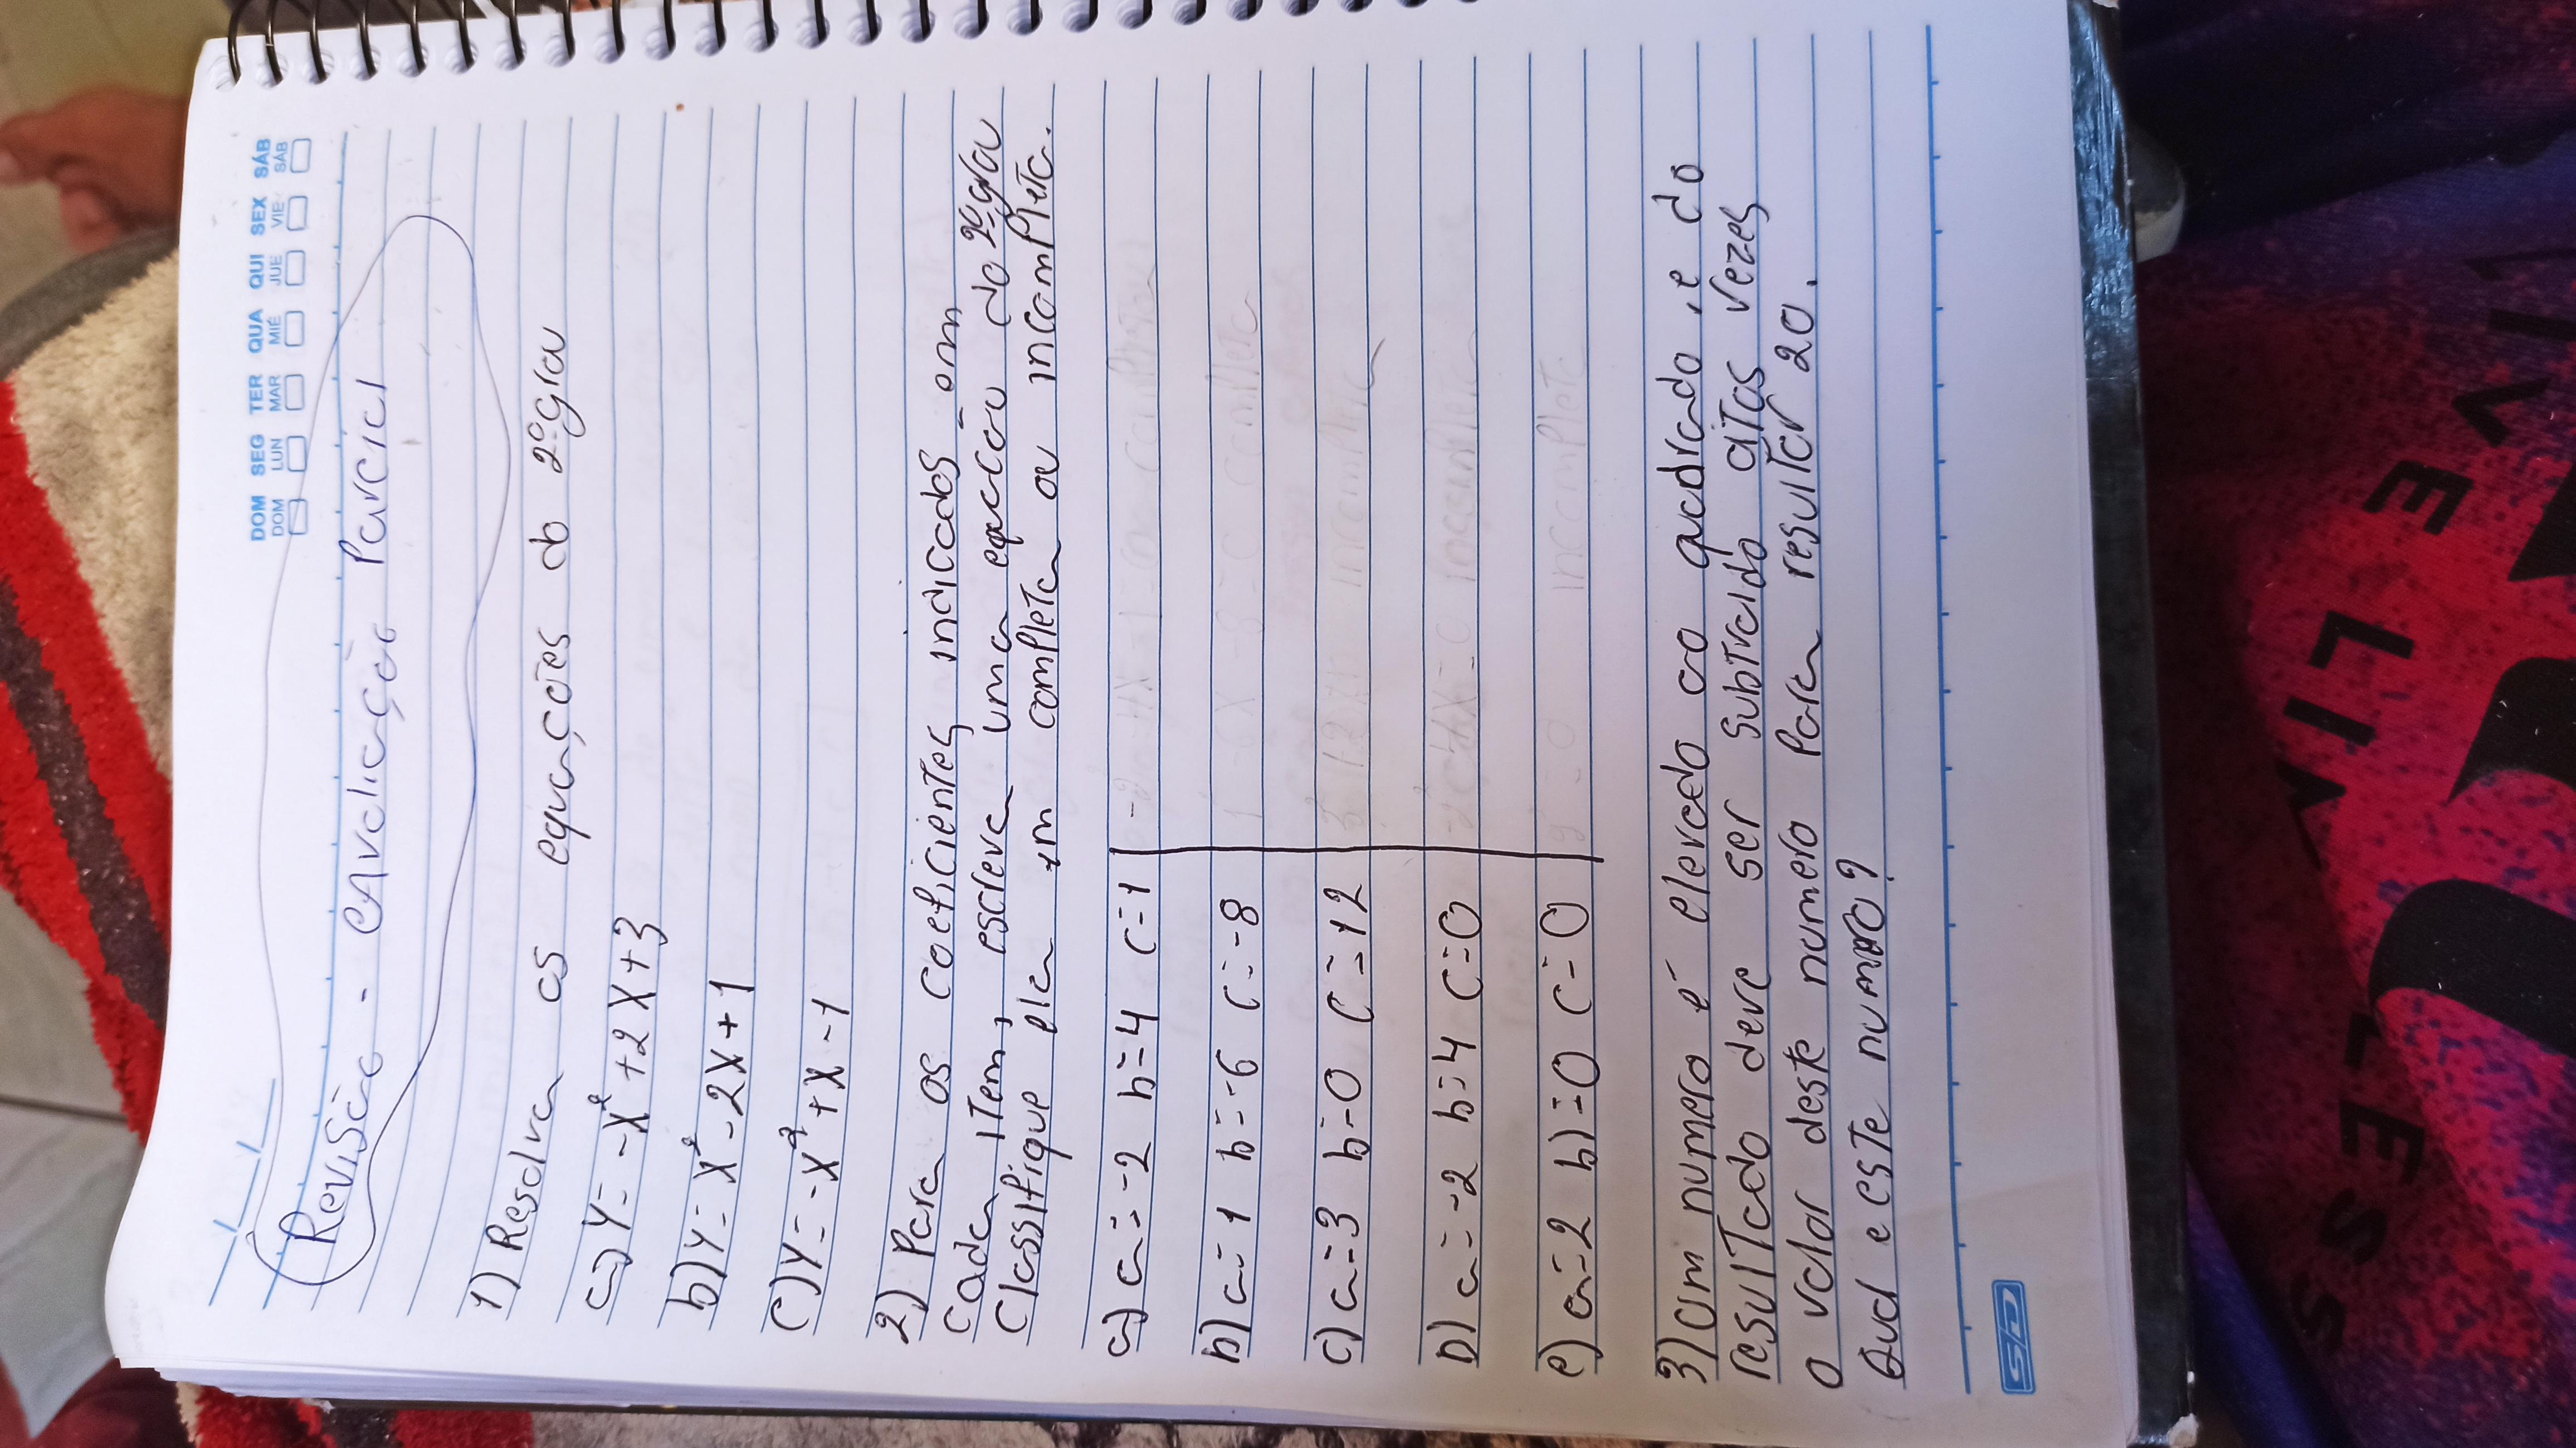 DOM SEG TER QUA QUI SEX SÁB
DOM LUN MAR MIÉ JUE VIE SÁB
Revisão - Avaliação Parcial
1) Resolva as equações do 2º grau
a) Y = -X² + 2X + 3
b) Y = X² - 2X + 1
c) Y = -X² + X - 1
2) Para os coeficientes indicados em
Cada item, escreva uma equação do 2º grau
Classifique ela em completa ou incompleta.
a) a=-2 b=4 c=1
b) a=1 b=-6 c=-8
c) a=3 b=0 c=12
D) a=-2 b=4 c=0
e) a=2 b=0 c=0
3) Um numero é elevado ao quadrado, e do
resultado deve ser subtraido oitos vezes
o valor deste numero para resultar 20.
Qual e este numero?
SD
LIVE
LIM
LES